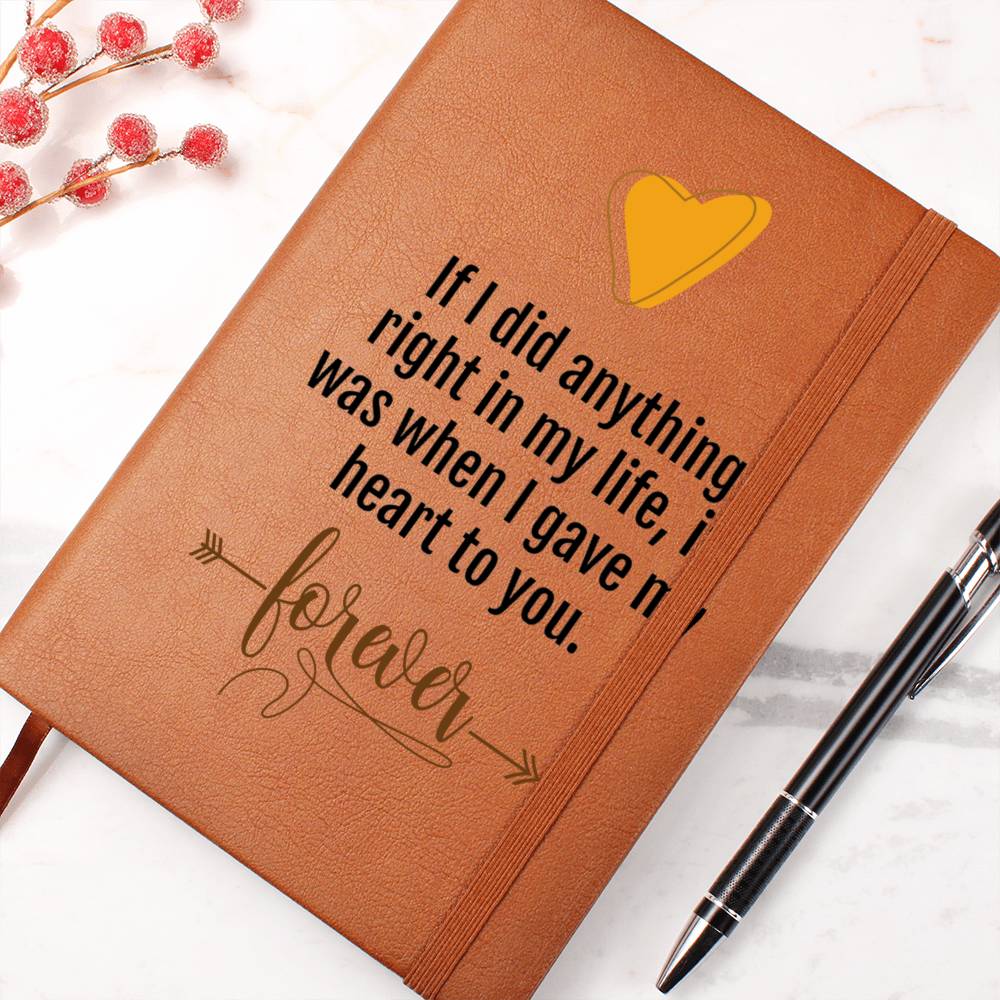 If I did anything
right in my life, i
was when I gave m
heart to you.
forever